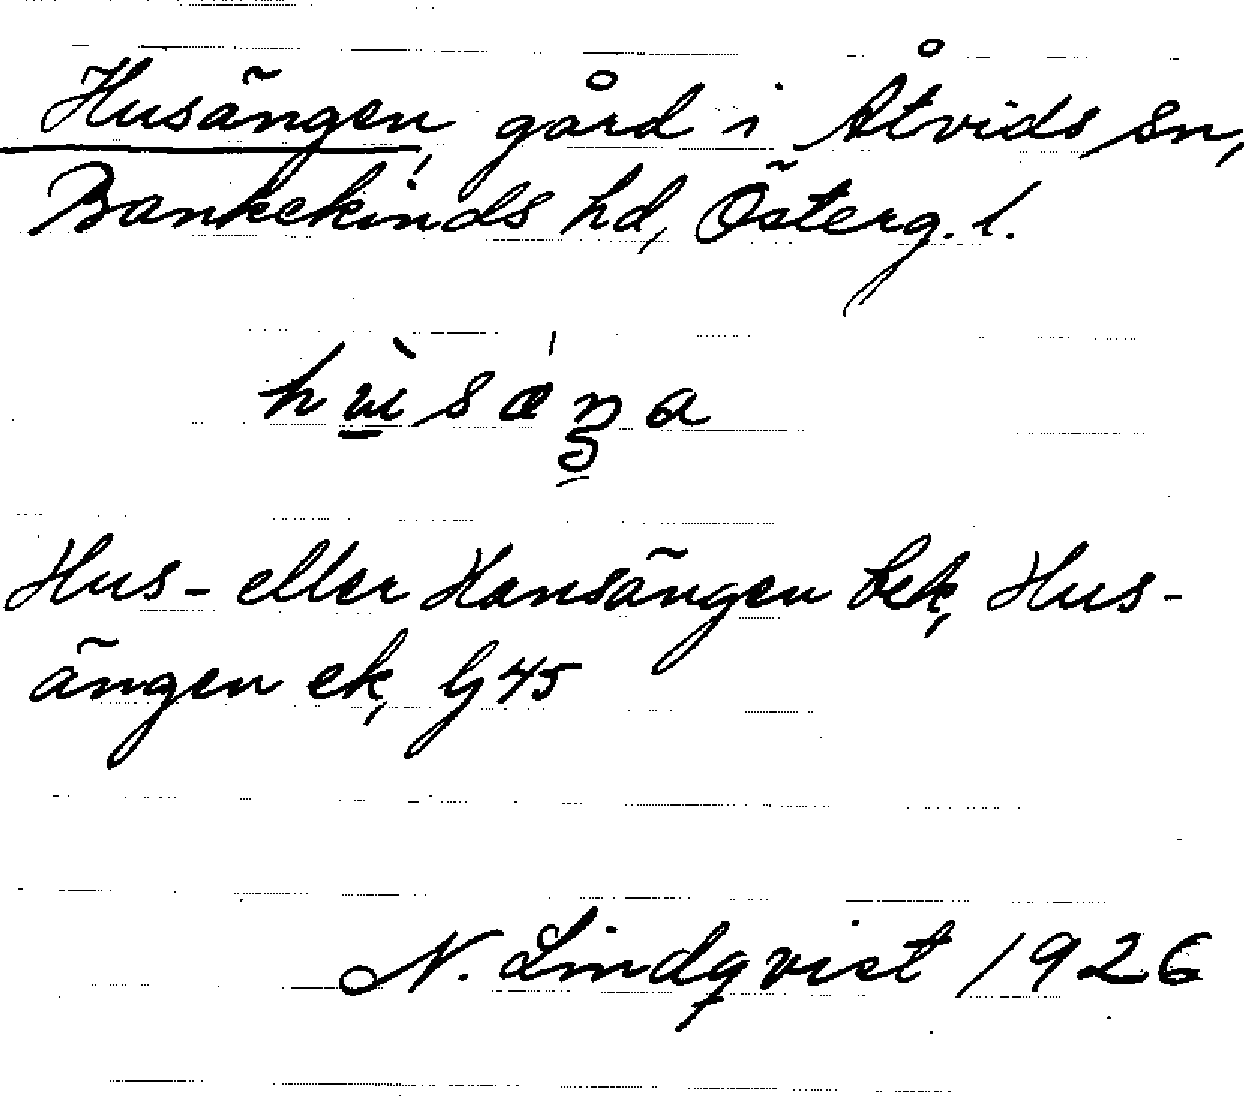 Husängen, gård i Åtvids sn,
Bankekinds hd, Österg. l.
Hus- eller Hansängen bek, Hus-
ängen ek, G 45
N. Lindqvist 1926